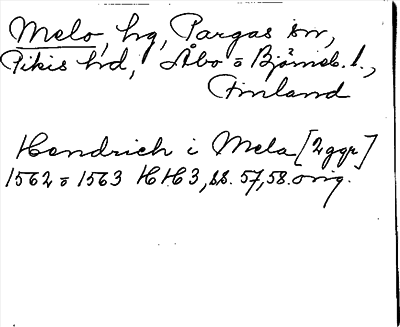 Melo, hg, Pargas sn,
Pikis hd, Åbo o Björneb. l.,
Finland
Hendrich i Mela [2 ggr]
1562 o 1563 HH3, ss. 57, 58. orig.